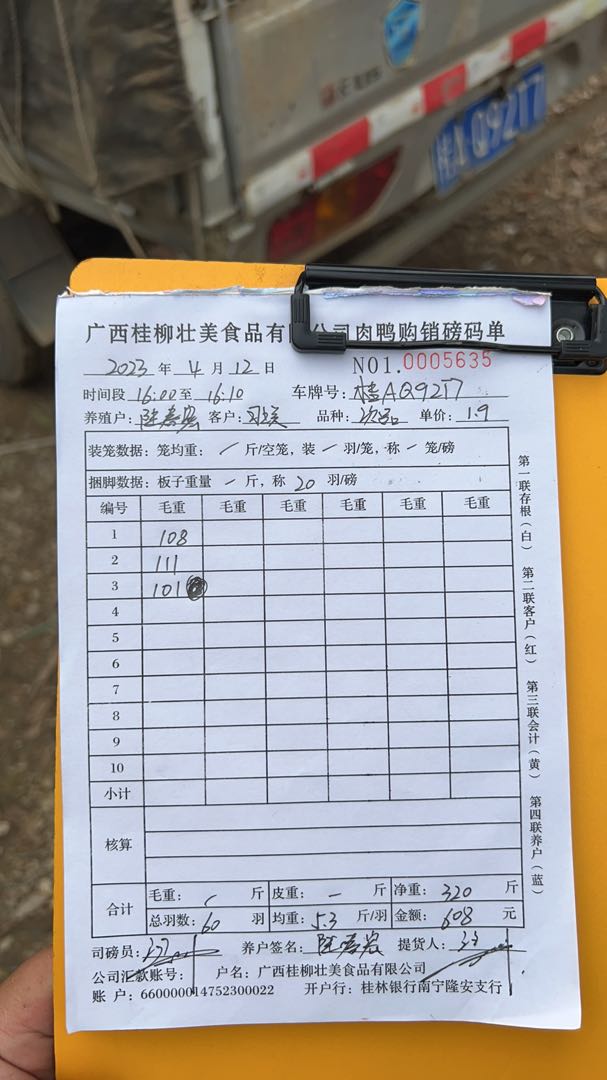 桂A Q92T7
广西桂柳壮美食品有限公司肉鸭购销磅码单
2023 年 4 月 12 日 NO1.0005635
时间段 16:00至 16:10 车牌号: 桂AQ92T7
养殖户: 客户: 品种: 次品 单价: 1.9
装笼数据: 笼均重: / 斤/空笼, 装 一 羽/笼, 称 一 笼/磅
捆脚数据: 板子重量 一 斤, 称 20 羽/磅
编号 毛重 毛重 毛重 毛重 毛重 毛重
1 108
2 111
3 101
4
5
6
7
8
9
10
小计
核算
合计 毛重: / 斤 皮重: 一 斤 净重: 320 斤
总羽数: 60 羽 均重: 5.3 斤/羽 金额: 608 元
司磅员: 养户签名: 提货人:
公司汇款账号: 户名: 广西桂柳壮美食品有限公司
账 户: 660000014752300022 开户行: 桂林银行南宁隆安支行
第一联存根(白) 第二联客户(红) 第三联会计(黄) 第四联养户(蓝)